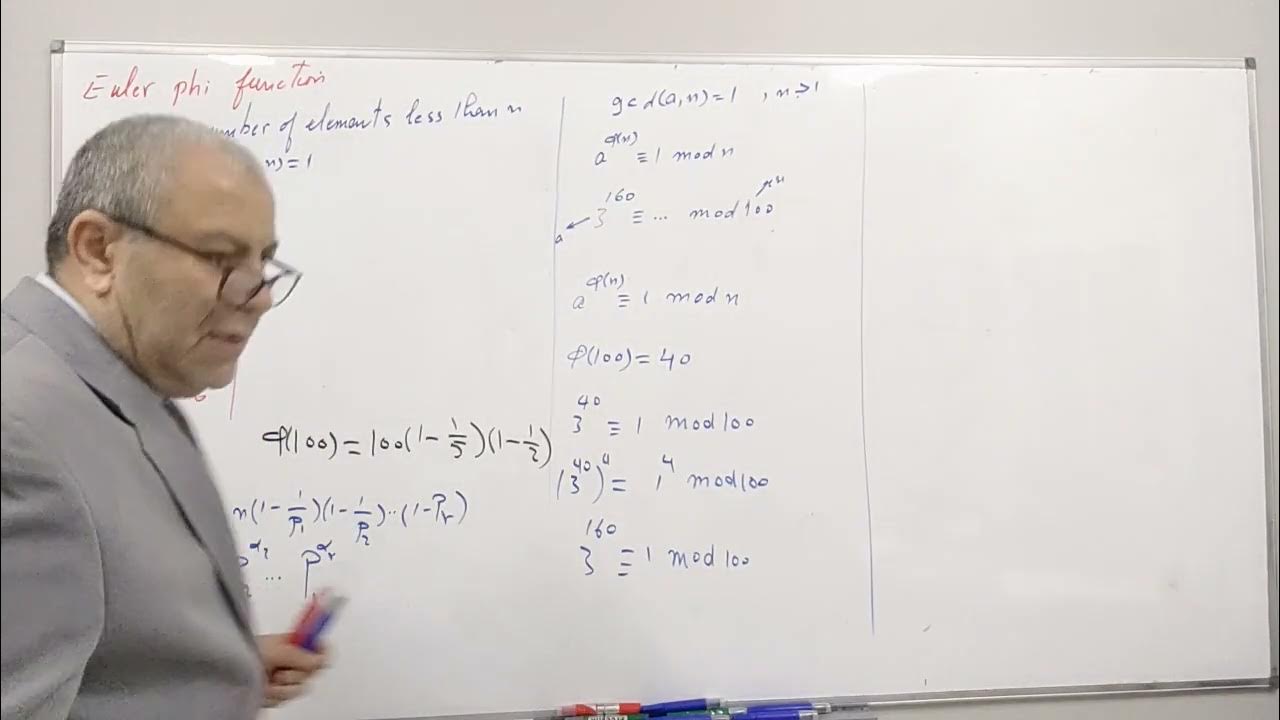 Euler phi function
mber of elements less than n
n)=1
φ(100)=100(1-1/5)(1-1/2)
n(1-1/P₁)(1-1/P₂)..(1-Pᵣ)
... P^αᵣ
gcd(a,n)=1 , n>1
a^φ(n) ≡ 1 mod n
3^160 ≡ ... mod 100
a
a^φ(n) ≡ 1 mod n
φ(100)=40
3^40 ≡ 1 mod 100
(3^40)^4 = 1^4 mod 100
3^160 ≡ 1 mod 100